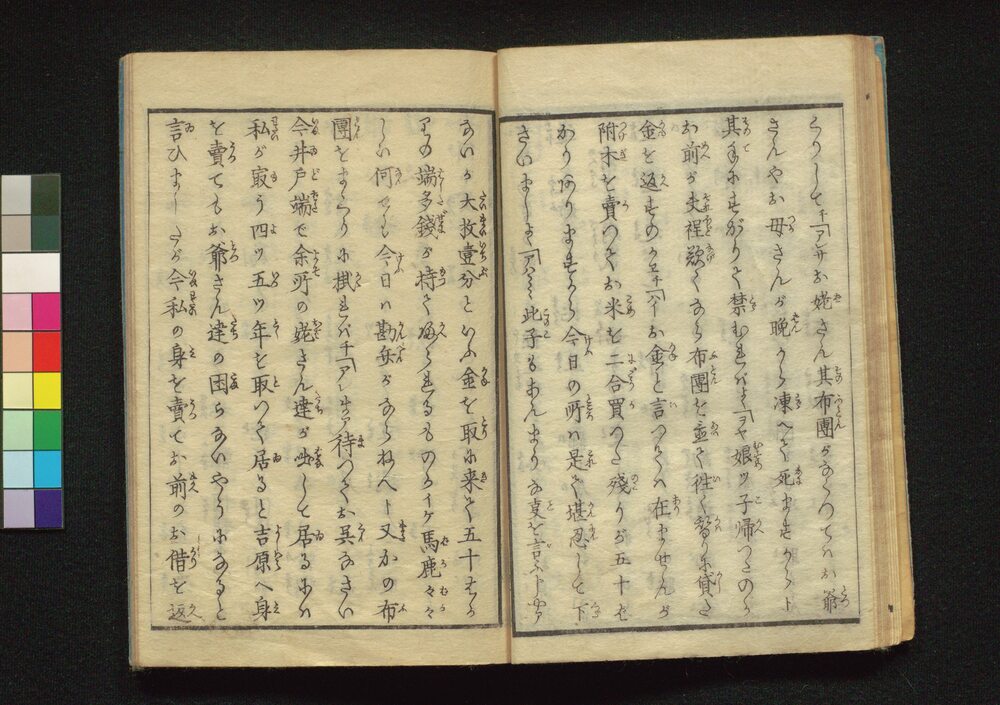 くりしてチ「アレサお姥さん其布團がなくつてハお爺
さんやお母さんが晩から凍へて死ますからト
其手にすがりて禁むれバよ「コヤ娘ッ子帰つたのか
お前が夫程歎くなら布團を置て往く替りに貸た
金を返すのかヱチ「ハイお金と言つてハ在ませんが
附木を賣つてお米を二合買つた残りが五十せ
かりありますから今日の所ハ是で堪忍して下
さいましよ「アハヽヽ此子もあんまりな事を言ふト
ないか大枚壹分といふ金を取に来て五十せか
りの端多錢が持て帰られるものかイケ馬鹿々々
しい何でも今日ハ勘弁がならねへト又かの布
團をまくりに掛れバチ「アレサ待つてお呉なさい
今井戸端で余所の姥さん達が噺して居るにハ
私が最う四ッ五ッ年を取つて居ると吉原へ身
を賣てもお爺さん達の困らないやうになると
言ひましたが今私の身を賣てお前のお借を返